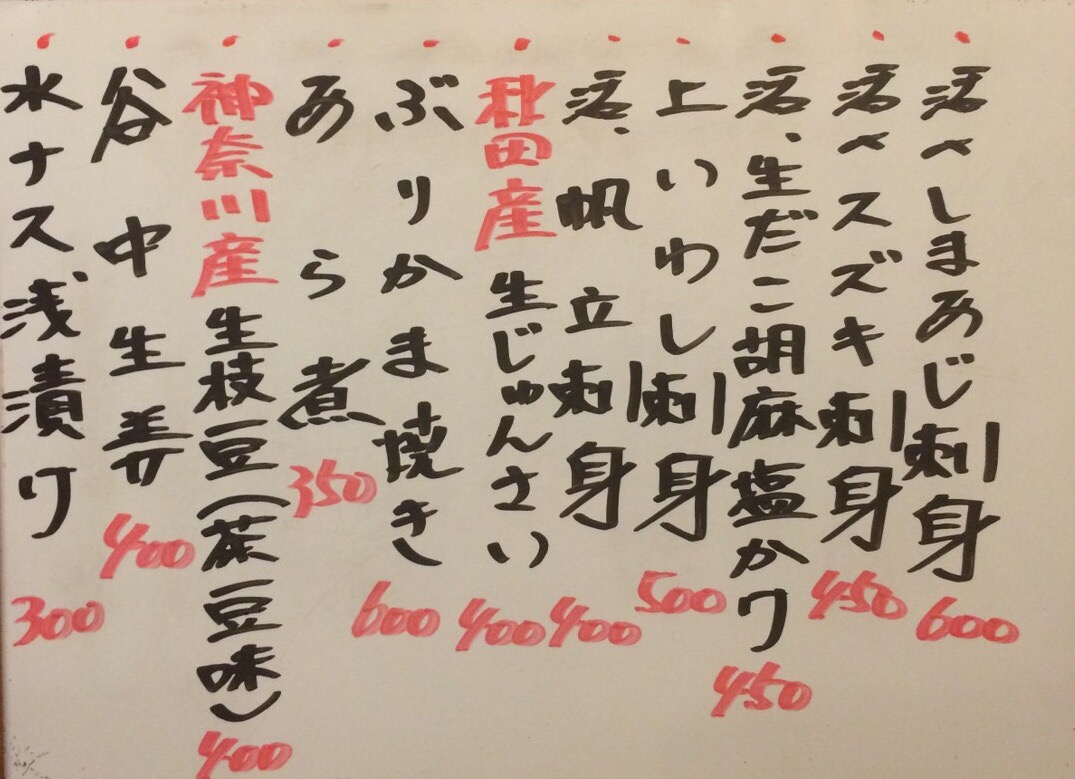 活〆しまあじ刺身 600
活〆スズキ刺身 450
活、生だこ胡麻塩かけ 450
上いわし刺身 500
活、帆立刺身 400
秋田産生じゅんさい 400
ぶりかま焼き 600
あら煮 350
神奈川産生枝豆(茶豆味) 400
谷中生姜 400
水ナス浅漬け 300